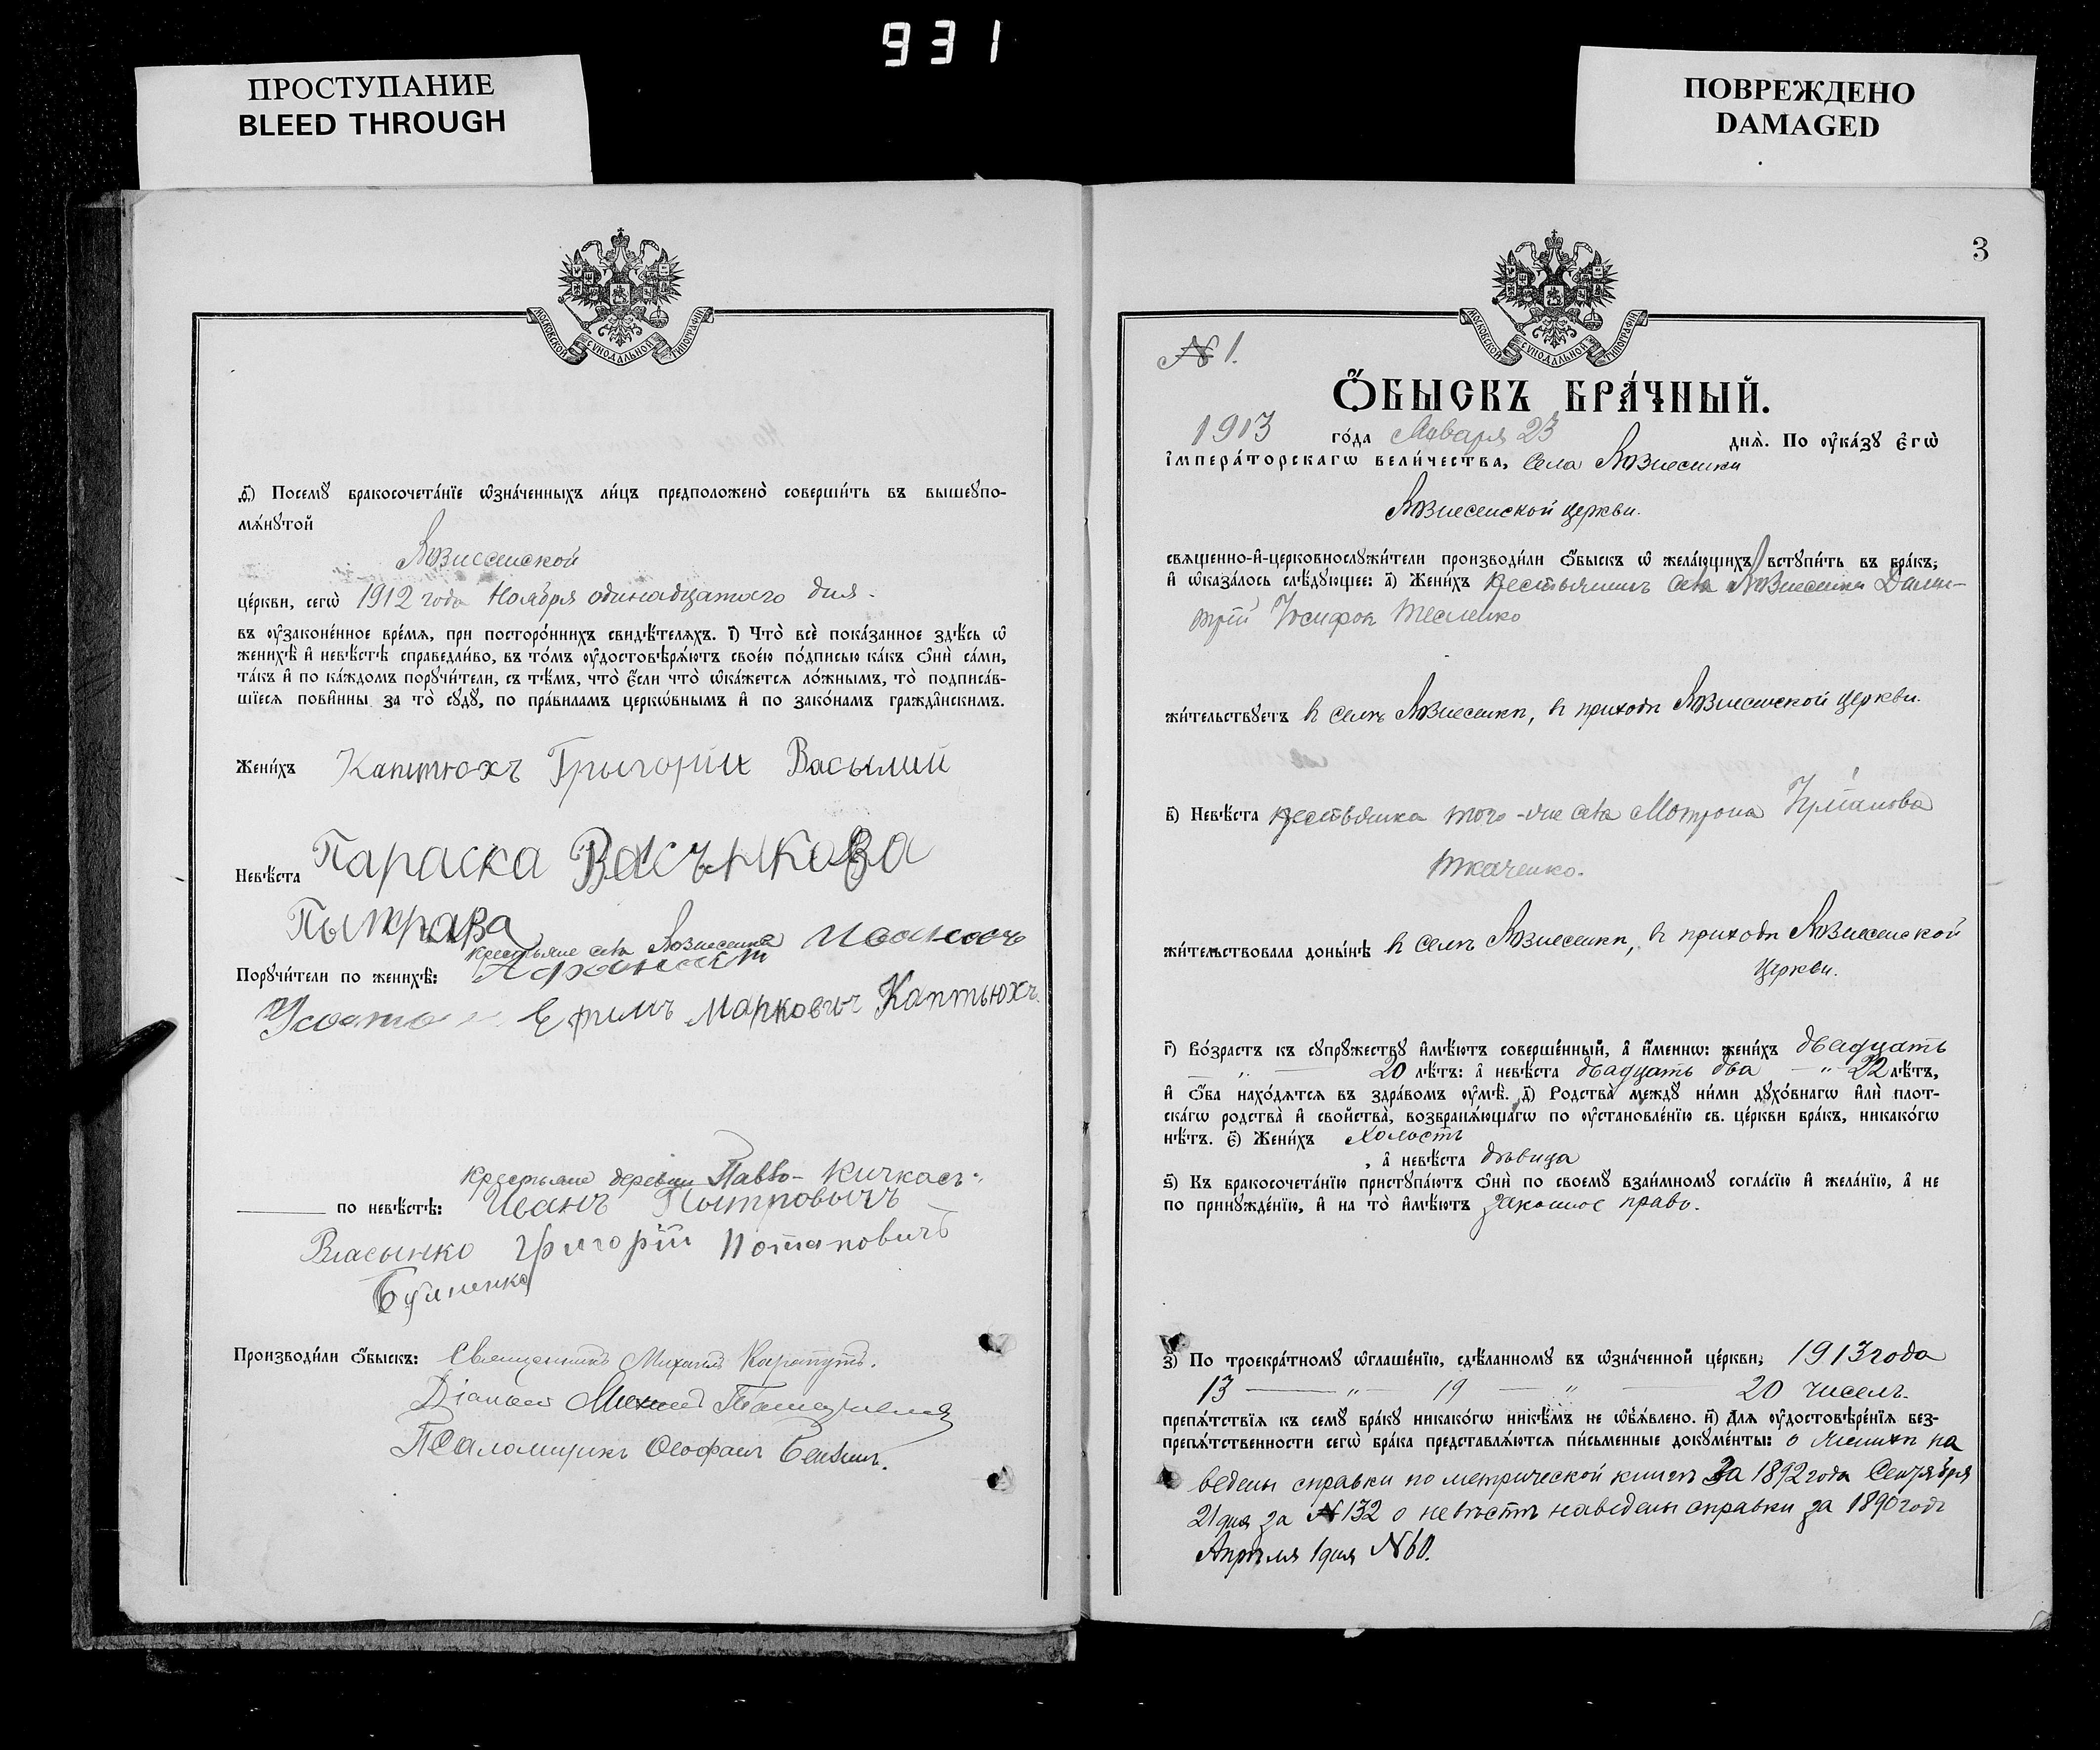 931
ПРОСТУПАНИЕ
BLEED THROUGH
ПОВРЕЖДЕНО
DAMAGED
МОСКОВСКОЙ СѴНОДАЛЬНОЙ ТИПОГРАФІИ
ѳ҃) Посемꙋ бракосочета́нїе ѡ҆зна́ченныхъ ли́цъ предположено̀ соверши́ть въ вышеꙋпо-
мѧ́нꙋтой
Вознесенской
це́ркви, сегѡ̀ 1912 года Ноября одинадцатаго дня.
въ ᲂу҆законе́нное вре́мѧ, при посторо́ннихъ свидѣ́телѧхъ. і҃) Что̀ всѐ пока́занное здѣ́сь ѡ҆
женихѣ̀ и҆ невѣ́стѣ справедли́во, въ то́мъ ᲂу҆достовѣрѧ́ютъ свое́ю по́дписью ка́къ ѻ҆нѝ са́ми,
та́къ и҆ по ка́ждомъ порꙋчи́тели, съ тѣ́мъ, что̀ є҆́сли что̀ ѡ҆ка́жетсѧ ло́жнымъ, то̀ подписа́в-
шїесѧ пови́нны за то̀ сꙋдꙋ̀, по пра́виламъ церко́внымъ и҆ по зако́намъ гражда́нскимъ.
Жени́хъ Каптюхъ Григорій Васылій
Невѣ́ста Параска Васъркова
Пытрава
крестьяне села Вознесенка
Порꙋчи́тели по женихѣ̀: Афанасій Ивановъ
Ефимъ Марковъ Каптюхъ
Крестьяне деревни Павло-Кичкасъ:
по невѣ́стѣ: Иванъ Пытровычъ
Власынко Григорій Потаповичъ
Буленко
Производи́ли ѻ҆́быскъ: Священникъ Михаилъ Карапутъ.
Діаконъ Михаилъ
Псаломщикъ Ѳеофанъ
3
МОСКОВСКОЙ СѴНОДАЛЬНОЙ ТИПОГРАФІИ
№ 1.
Ѻ҆́БЫСКЪ БРА́ЧНЫЙ.
1913 го́да Января 23 днѧ̀. По ᲂу҆ка́зꙋ є҆гѡ̀
і҆мпера́торскагѡ вели́чества, села Вознесенки
Вознесенской церкви.
свѧщенно-и҆-церковнослꙋжи́тели производи́ли ѻ҆́быскъ ѡ҆ жела́ющихъ встꙋпи́ть въ бра́къ;
и҆ ѡ҆каза́лось слѣ́дꙋющее: а҃) Жени́хъ крестьянинъ села Вознесенки Дими-
трій Іосифов Тесленко
жи́тельствꙋетъ в селѣ Вознесенкѣ, в приходѣ Вознесенской церкви.
в҃) Невѣ́ста крестьянка того-же села Мотрона Куліанова
Ткаченко.
жи́тельствовала доны́нѣ в селѣ Вознесенкѣ, в приходѣ Вознесенской
церкви.
г҃) Во́зрастъ къ сꙋпрꙋ́жествꙋ и҆мѣ́ютъ соверше́нный, а҆ и҆́меннѡ: жени́хъ двадцать
20 лѣ́тъ: а҆ невѣ́ста двадцать два 22 лѣ́тъ,
и҆ ѻ҆́ба нахо́дѧтсѧ въ здра́вомъ ᲂу҆мѣ̀. д҃) Родства̀ мeждꙋ ни́ми дꙋхо́внагѡ и҆лѝ плот-
ска́гѡ родства̀ и҆ сво́йства, возбранѧ́ющагѡ по ᲂу҆становле́нїю св. це́ркви бра́къ, никако́гѡ
нѣ́тъ. є҃) Жени́хъ холостъ
, а҆ невѣ́ста дѣвица
ѕ҃) Къ бракосочета́нїю пристꙋпа́ютъ ѻ҆нѝ по своемꙋ̀ взаи́мномꙋ согла́сїю и҆ жела́нїю, а҆ не
по принꙋжде́нїю, и҆ на то̀ и҆мѣ́ютъ законное право.
з҃) По троекра́тномꙋ ѡ҆глаше́нїю, сдѣ́ланномꙋ въ ѡ҆зна́ченной це́ркви; 1913 года
13 — " — 19 — " — 20 чиселъ.
препѧ́тствїѧ къ семꙋ̀ бра́кꙋ никако́гѡ никѣ́мъ не ѡ҆б̾ѧ́влено. и҃) Длѧ ᲂу҆достовѣре́нїѧ без-
препѧ́тственности сегѡ̀ бра́ка представлѧ́ютсѧ пи́сьменные докꙋме́нты: о женихѣ на
ведены справки по метрической книгѣ за 1892 года Сентября
21 дня за №132 о невѣстѣ наведены справки за 1890 годъ
Апрѣля 1 дня №60.